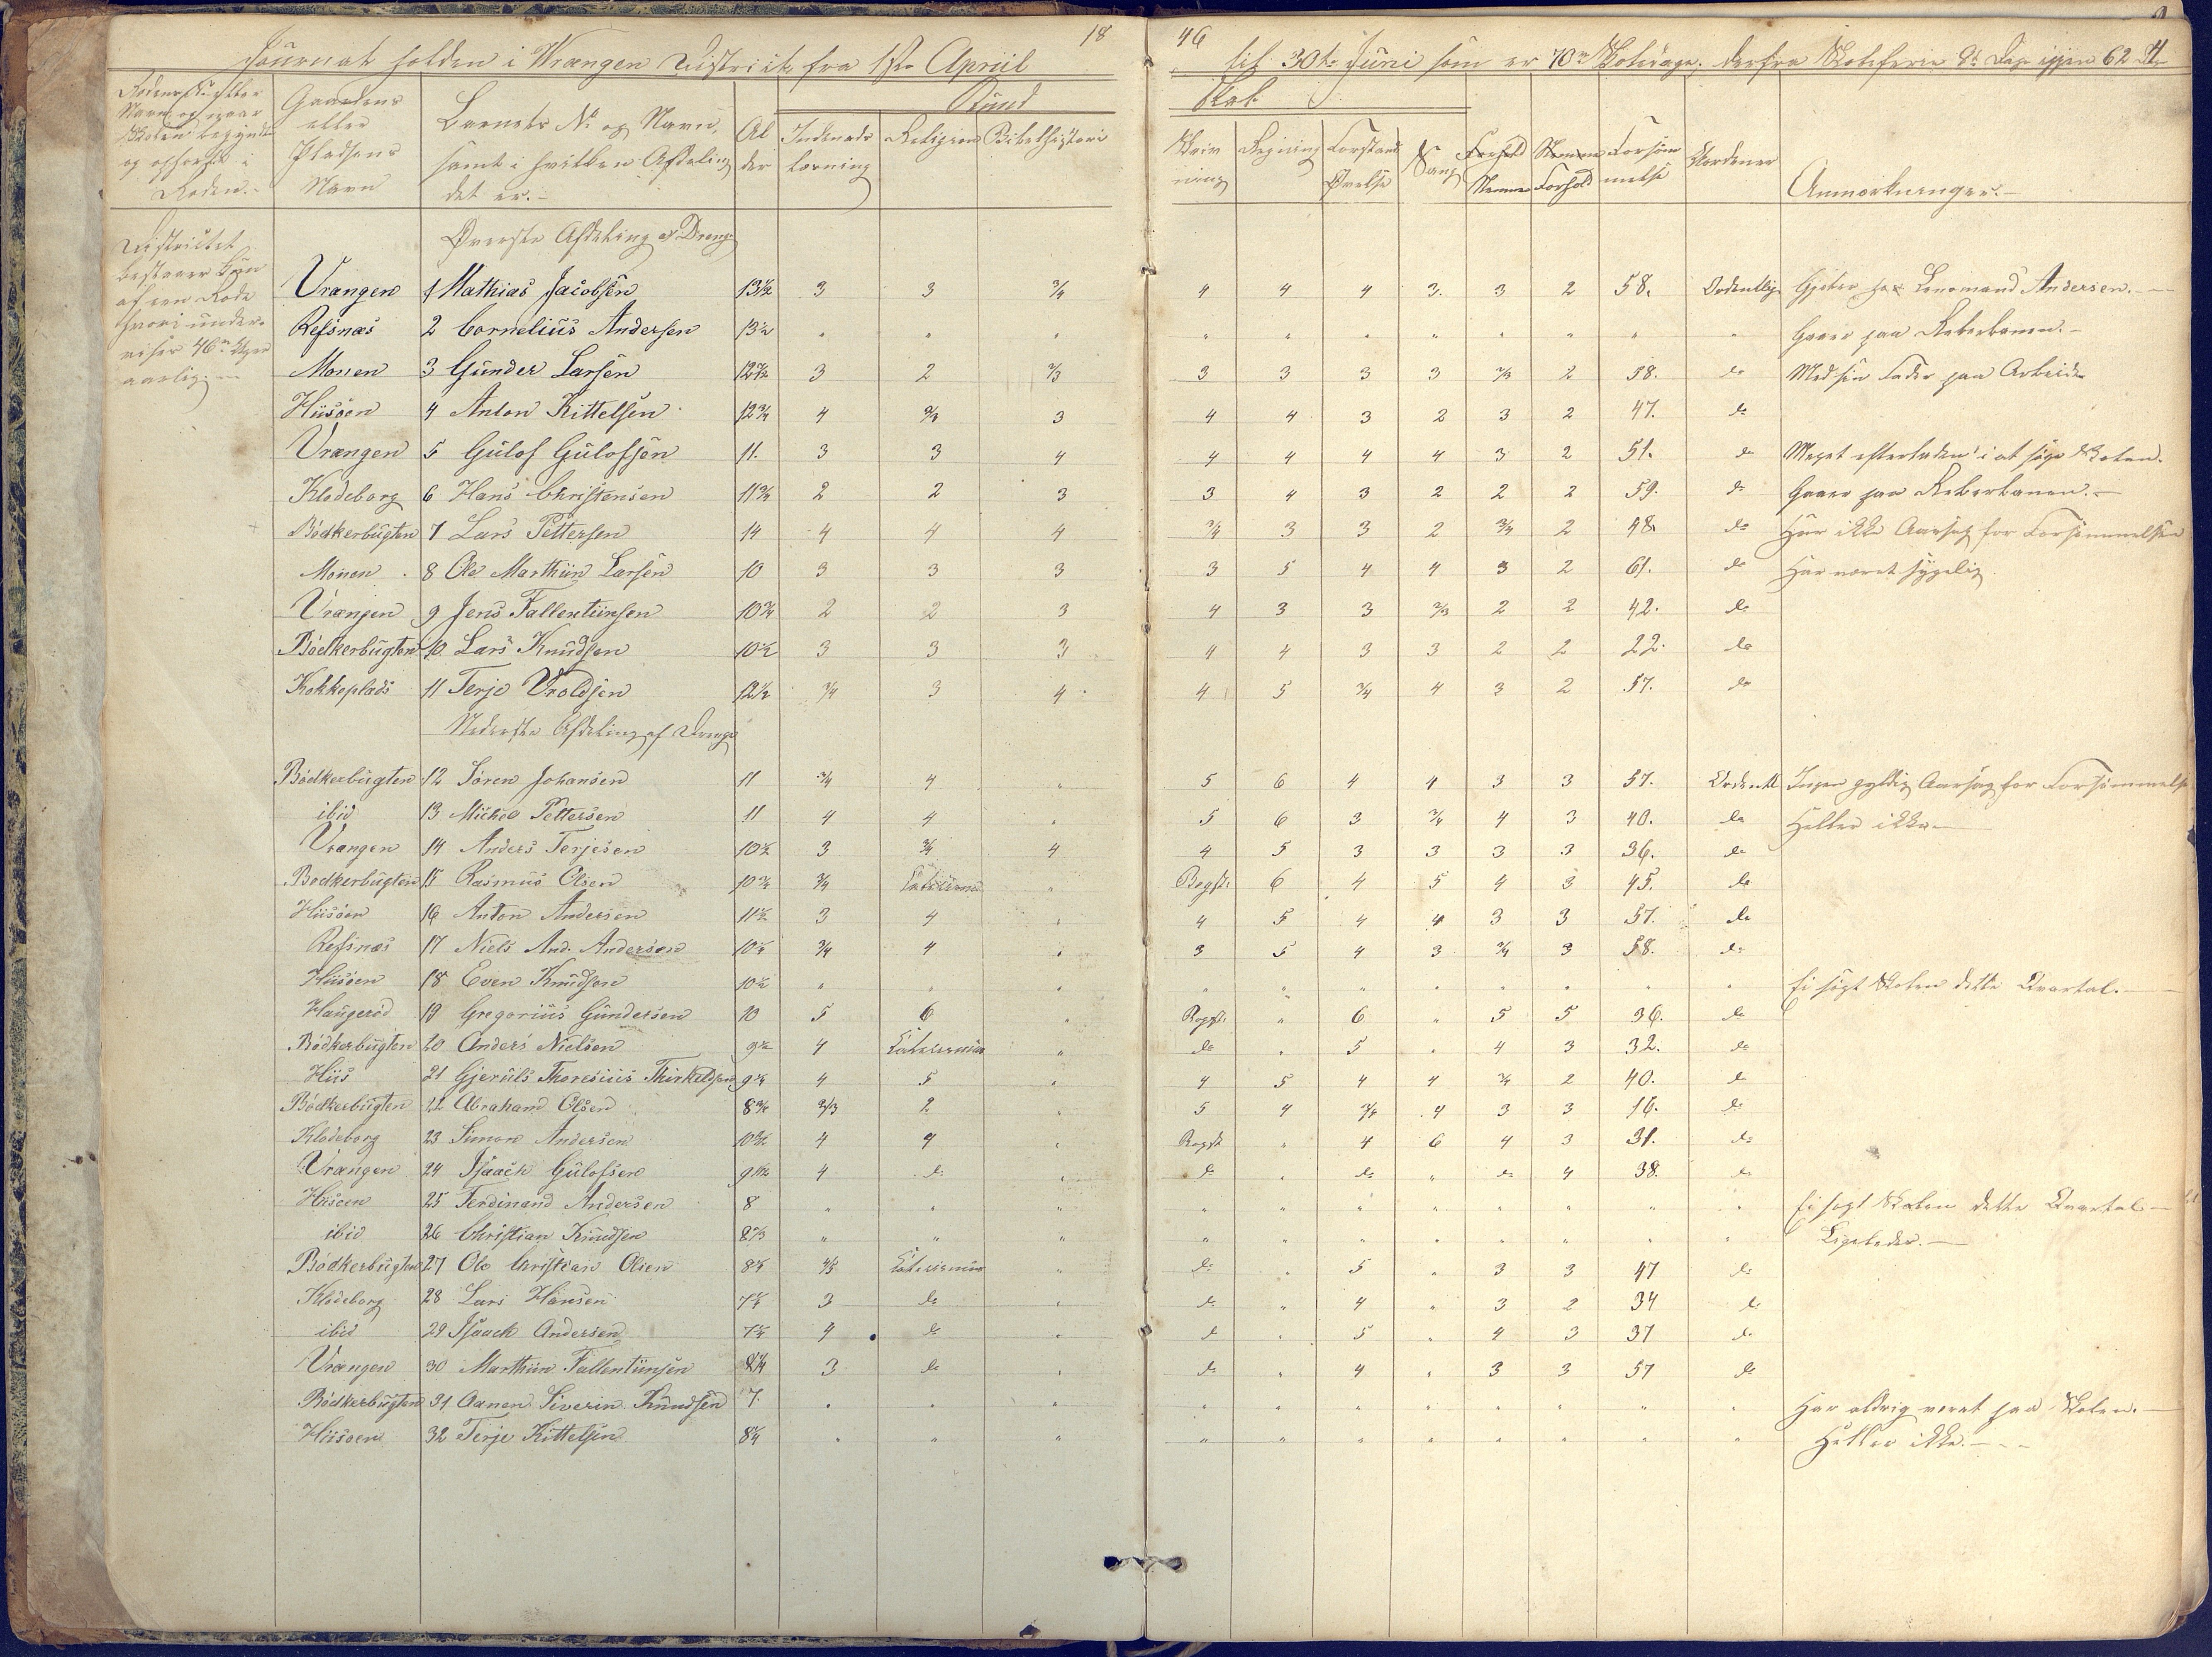 18 46
Journal holden i Wrangen District fra 1ste April til 30te Juni som er 70 Skoledage, derfra Skoleferie 8 Dage igjen 62
Kundskab
Rodens
Navn og naar
Skolen begyndte
og ophørte i
Roden.
Gaardens
eller
Pladsens
Navn
Barnets No og Navn,
samt i hvilken Afdeling
det er.
Alder
Indenadslæsning
Religion
Bibelhistorie
Skrivning
Regning
Forstands Øvelse
Sang
Nemme
Forhold
Forsømmelse
Anmærkninger.
Districtet
bestaaer kun
af een Rode
hvori underviser
aarlig
Øverste Afdeling af Drenge
Vrangen 1 Mathias Jacobsen 13½ 3 3 3/4 4 4 4 3. 3 2 58. Ordentlig Gjeter hos Lensmand Andersen.
Refsnæs 2 Cornelius Andersen 13½ " " " " " " " " " " " Gaaer paa Reberbanen.
Monen 3 Gunder Larsen 12 3 2 2/3 3 3 3 3 2/3 2 58. do Med sin Fader paa Arbeide
Hiisöen 4 Anton Kittelsen 12¾ 4 3/4 3 4 4 3 2 3 2 47. do
Vrangen 5 Gulof Gulofsen 11. 3 3 4 4 4 4 4 3 2 51. do Meget efterladen i at søge Skolen.
Klodeborg 6 Hans Christensen 11¾ 2 2 3 3 4 3 2 2 2 59. do Gaaer paa Reberbanen.
Bödkerbugten 7 Lars Pettersen 14 4 4 4 3/4 3 3 2 3/4 2 48. do Har ikke Aarsag for Forsømmelsen
Monen 8 Ole Marthin Larsen 10 3 3 3 3 5 4 4 3 2 61. do Har været sygelig
Vrangen 9 Jens Fallentinsen 10¾ 2 2 3 4 3 3 2/3 2 2 42. do
Bödkerbugten 10 Lars Knudsen 10½ 3 3 3 4 4 3 3 2 2 22. do
Kokkeplads 11 Terje Vroldsen 12½ 3/4 3 4 4 5 3/4 4 3 2 57. do
Nederste Afdeling af Drenge
Bödkerbugten 12 Sören Johansen 11 3/4 4 " 5 6 4 4 3 3 57. Ordentl Ingen gyldig Aarsag for Forsømmelse
ibid 13 Michel Pettersen 11 4 4 " 5 6 3 3/4 4 3 40. do Heller ikke
Vrangen 14 Anders Terjesen 10½ 3 3/4 4 4 5 3 3 3 3 36. do
Bodkerbugten 15 Rasmus Olsen 10¾ 3/4 " Begst. 6 4 5 4 3 45. do
Hiisöen 16 Anton Andersen 11½ 3 4 " 4 5 4 4 3 3 57. do
Refsnæs 17 Niels And. Andersen 10½ 3/4 4 " 3 5 4 3 3/4 3 58. do
Hiisöen 18 Even Knudsen 10½ " " " " " " " " " " " Ei søgt Skolen dette Qvartal.
Haugeröd 19 Gregorius Gundersen 10 5 6 " " 6 " 5 5 36. do
Bödkerbugten 20 Anders Nielsen 9½ 4 " do " 5 " 4 3 32. do
Hiis 21 Gjeruls Thoresius Thirkeldsen 9¼ 4 5 " 4 5 4 4 3/4 2 40. do
Bödkerbugten 22 Abraham Olsen 8¾ 2/3 2 " 5 4 3/4 4 3 3 16. do
Klodeborg 23 Simon Andersen 10 4 4 " " 4 6 4 3 31. do
Vrangen 24 Isaach Gulofsen 9 4 do " do " do " do 4 38. do
Hiisöen 25 Ferdinand Andersen 8 " " " " " " " " " " " Ei søgt Skolen dette Qvartal
ibid 26 Christian Knudsen 8 " " " " " " " " " " " Ligeledes.
Bödkerbugten 27 Ole Christian Olsen 8 4/5 " do " 5 " 3 3 47 do
Klodeborg 28 Lars Hansen 7 3 do " do " 4 " 3 2 34 do
ibid 29 Isaack Andersen 7 4 do " do " 5 " 4 3 37 do
Vrangen 30 Marthin Fallentinsen 8¼ 3 do " do " 4 " 3 3 57 do
Bödkerbugten 31 Aanen Siverin Knudsen 7. " " " " " " " " " " " Har aldrig været paa Skolen.
Hiisoen 32 Terje Kittelsen 8¼ " " " " " " " " " " " Heller ikke.